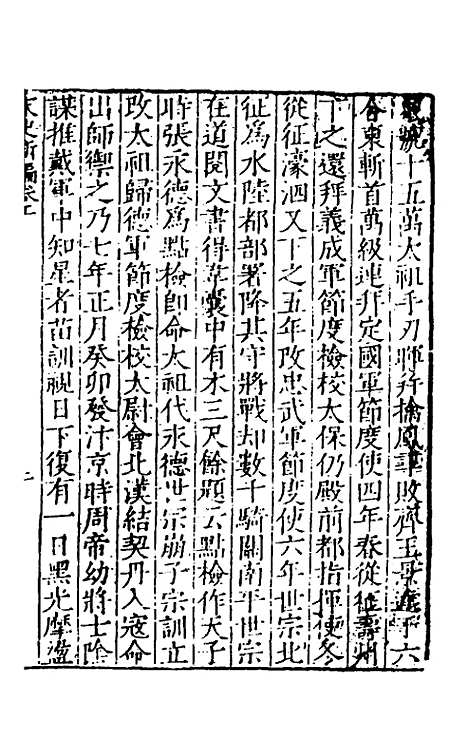 衆號十五萬太祖手刃暉并擒鳳尋敗齊王景達于六
合東斬首萬級連拜定國軍節度使四年春從征壽州
下之還拜義成軍節度檢校太保仍殿前都指揮使冬
從征濠泗又下之五年改忠武軍節度使六年世宗北
征爲水陸都部署降其守將戰却數千騎關南平世宗
在道閱文書得韋囊中有木三尺餘題云點檢作天子
時張永德爲點檢卽命太祖代永德世宗崩子宗訓立
改太祖歸德軍節度檢校太尉會北漢結契丹入寇命
出師禦之乃七年正月癸卯發汴京時周帝幼將士陰
謀推戴軍中知星者苗訓視日下復有一日黑光摩盪
宋史新編卷一 二